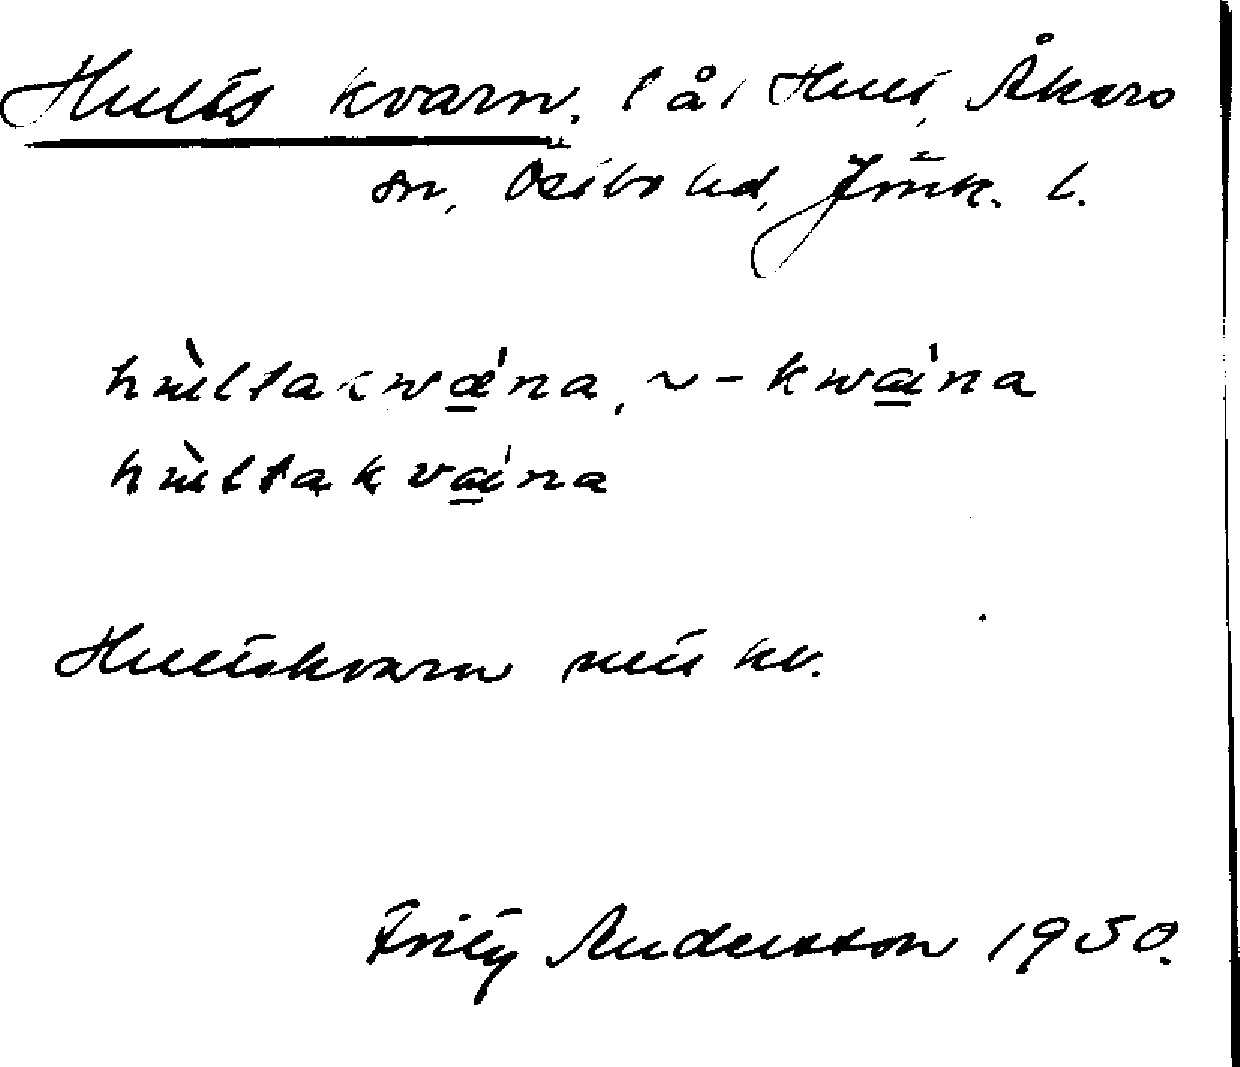 Hults kvarn, l å, Hult, Åkers
sn, Östbo hd, Jönk. l.
hùltakwǽna, ~ -kwǽna
hùltakvǽna
Hultskvarn
Fritz Andersson 1950.